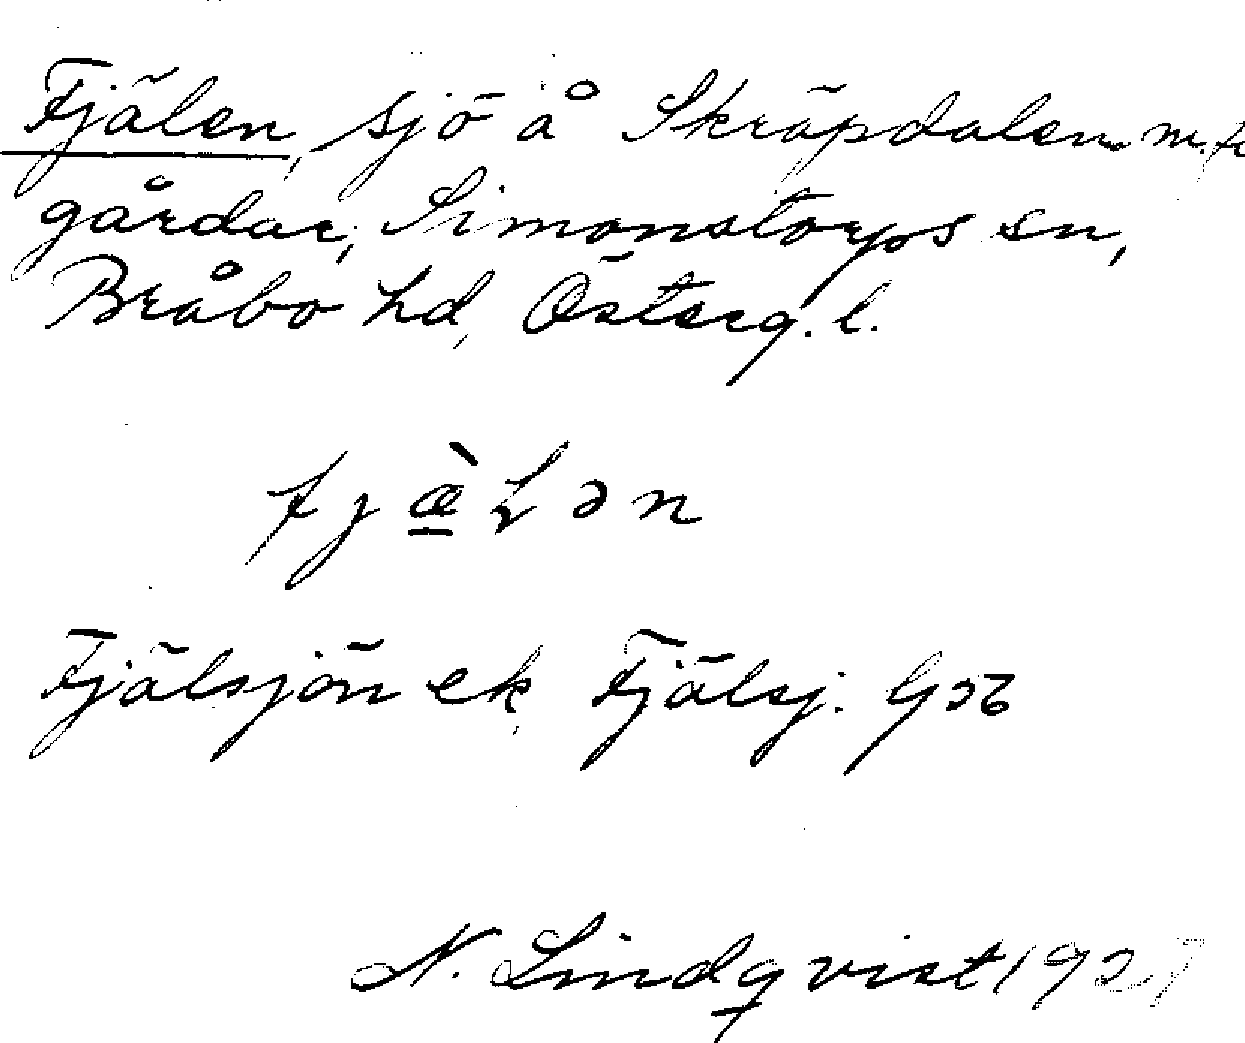 Fjälen, sjö å Skräpdalen m. fl
gårdar, Simonstorps sn,
Bråbo hd, Österg. l.
fjæ̀lən
Fjälsjön ek, Fjälsj. Gsæ
N. Lindqvist 1927